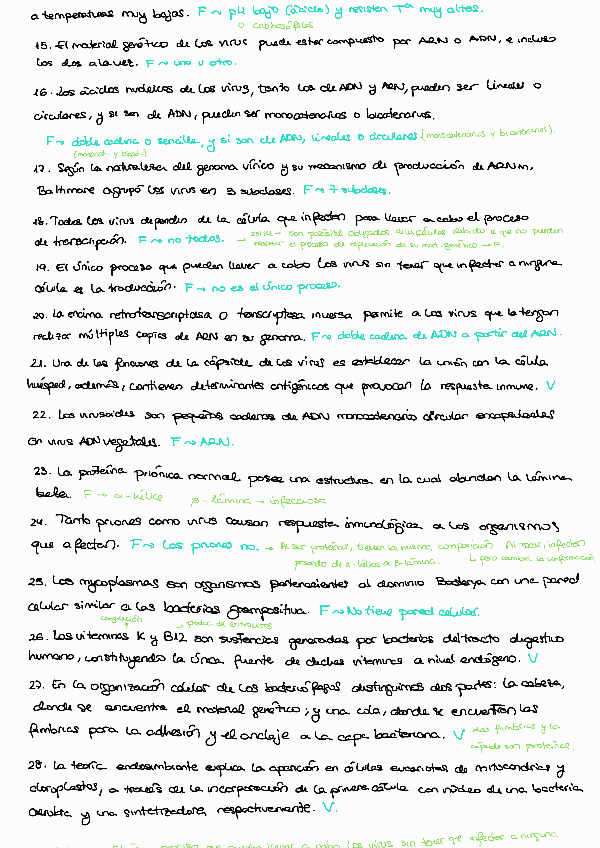 a temperaturas muy bajas. F ~ pH bajo (ácido) y resisten Tª muy altas.
o criobiófilos
15. El material genético de los virus puede estar compuesto por ARN o ADN, e incluso
los dos a la vez. F ~ uno u otro.
16. Los ácidos nucleicos de los virus, tanto los de ADN y ARN, pueden ser lineales o
circulares, y si son de ADN, pueden ser monocatenarios o bicatenarios.
F ~ doble cadena o sencilla, y si son de ADN, lineales o circulares (monocatenarios y bicatenarios).
(monocat. y bicat.)
17. Según la naturaleza del genoma vírico y su mecanismo de producción de ARNm,
Baltimore agrupó los virus en 3 subclases. F ~ 7 subclases.
18. Todos los virus dependen de la célula que infectan para llevar a cabo el proceso
de transcripción. F ~ no todos. → son parásitos obligados de las células debido a que no pueden
realizar el proceso de replicación de su mat. genético → F.
19. El único proceso que pueden llevar a cabo los virus sin tener que infectar a ninguna
célula es la traducción. F ~ no es el único proceso.
20. La enzima retrotranscriptasa o transcriptasa inversa permite a los virus que la tengan
realizar múltiples copias de ARN en su genoma. F ~ doble cadena de ADN a partir del ARN.
21. Una de las funciones de la cápside de los virus es establecer la unión con la célula
huésped, además, contienen determinantes antigénicos que provocan la respuesta inmune. V
22. Los virusoides son pequeñas cadenas de ADN monocatenario circular encapsuladas
en virus ADN vegetales. F ~ ARN.
23. La proteína priónica normal posee una estructura en la cual abundan la lámina
beta. F → α-hélice β-lámina → infecciosa
24. Tanto priones como virus causan respuesta inmunológica a los organismos
que afectan. F ~ Los priones no. → Al ser proteínas, tienen la misma composición. Al tocar, infectan
pasando de α-hélice a β-lámina. ↳ pero cambia la conformación
25. Los mycoplasmas son organismos pertenecientes al dominio Bacterya con una pared
celular similar a las bacterias grampositiva. F ~ No tiene pared celular.
coagulación → produc. de eritrocitos
26. Las vitaminas K y B12 son sustancias generadas por bacterias del tracto digestivo
humano, constituyendo la única fuente de dichas vitaminas a nivel endógeno. V
27. En la organización celular de los bacteriófagos distinguimos dos partes: la cabeza,
donde se encuentra el material genético; y una cola, donde se encuentran las
fimbrias para la adhesión y el anclaje a la capa bacteriana. V las fimbrias y la
cápside son proteínas.
28. La teoría endosimbionte explica la aparición en células eucariotas de mitocondrias y
cloroplastos, a través de la incorporación de la primera célula con núcleo de una bacteria
aerobia y una sintetizadora, respectivamente. V.